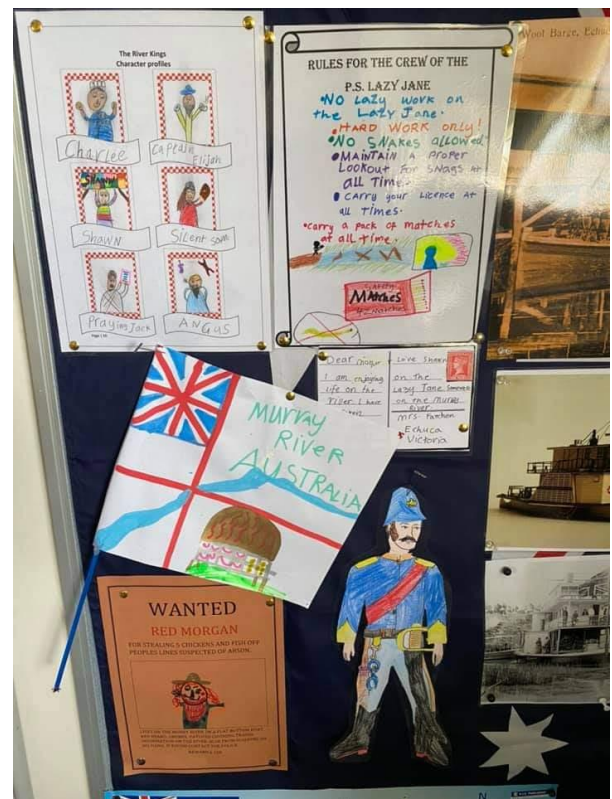 The River Kings
Character profiles
Charlee
Captain
Elijah
Shawn
Silent Sam
Praying Jack
ANGUS
RULES FOR THE CREW OF THE
P.S. LAZY JANE
•No Lazy work on
the Lazy Jane.
•HARD WORK only!
•NO SNAKES allowed
•MAINTAIN a Proper
Lookout for snags at
all Time.
•Carry your Licence at
all times.
•carry a pack of matches
at all time.
Matches
Wool Barge, Echuca
Dear
I am enjoying
life on the
river I have
Love Shawn
on the
Lazy Jane
on the Murray
River
Mrs
Echuca
Victoria
Murray
River
AUSTRALIA
WANTED
RED MORGAN
FOR STEALING 5 CHICKENS AND FISH OFF
PEOPLES LINES SUSPECTED OF ARSON.